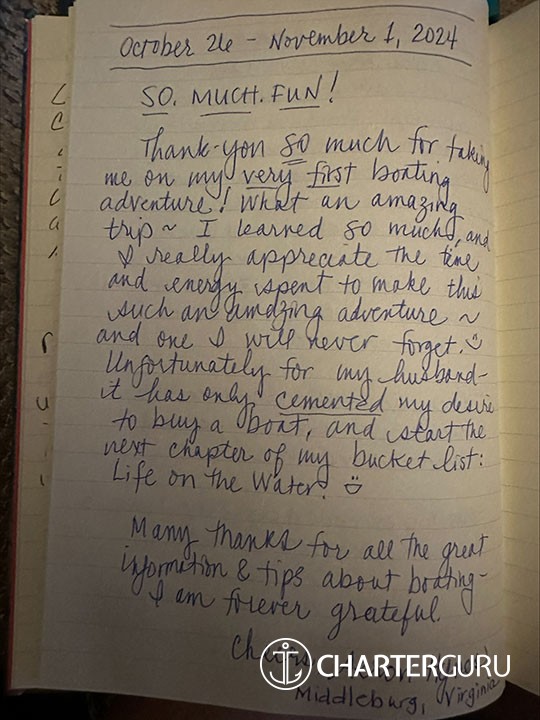 October 26 - November 1, 2024
SO. MUCH. FUN!
Thank-you so much for taking
me on my very first boating
adventure! What an amazing
trip ~ I learned so much, and
I really appreciate the time
and energy spent to make this
such an amazing adventure ~
and one I will never forget.
Unfortunately for my husband -
it has only cemented my desire
to buy a boat, and start the
next chapter of my bucket list:
Life on the Water!
Many thanks for all the great
information & tips about boating -
I am forever grateful.
CHARTERGURU
Middleburg, Virginia